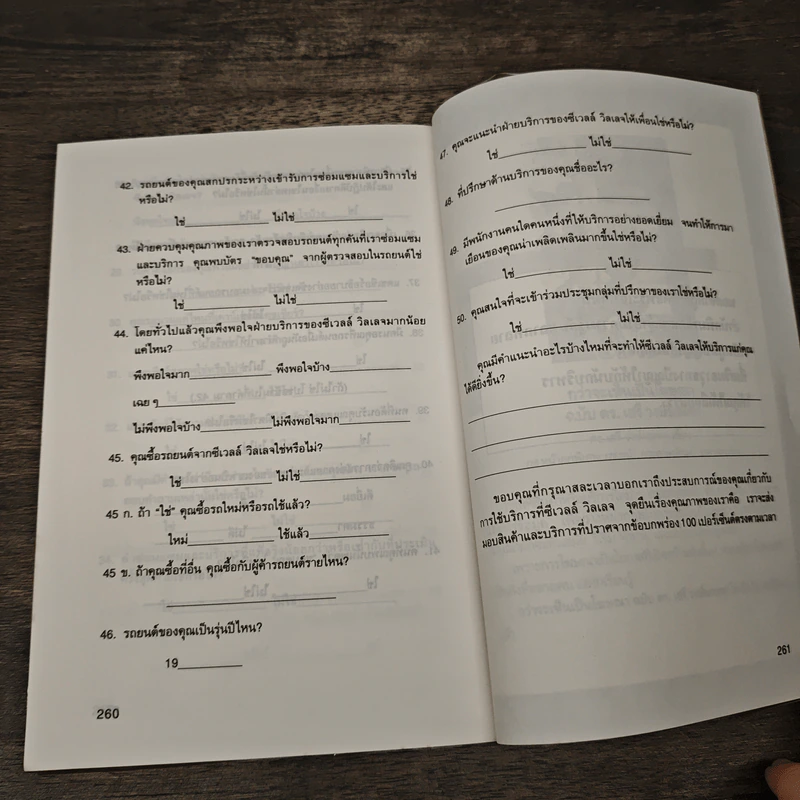 42. รถยนต์ของคุณสกปรกระหว่างเข้ารับการซ่อมแซมและบริการใช่
หรือไม่?
ใช่ ไม่ใช่
43. ฝ่ายควบคุมคุณภาพของเราตรวจสอบรถยนต์ทุกคันที่เราซ่อมแซม
และบริการ คุณพบบัตร "ขอบคุณ" จากผู้ตรวจสอบในรถยนต์ใช่
หรือไม่?
ใช่ ไม่ใช่
44. โดยทั่วไปแล้วคุณพึงพอใจฝ่ายบริการของซีเวลล์ วิลเลจมากน้อย
แค่ไหน?
พึงพอใจมาก พึงพอใจบ้าง
เฉย ๆ
ไม่พึงพอใจบ้าง ไม่พึงพอใจมาก
45. คุณซื้อรถยนต์จากซีเวลล์ วิลเลจใช่หรือไม่?
ใช่ ไม่ใช่
45 ก. ถ้า "ใช่" คุณซื้อรถใหม่หรือรถใช้แล้ว?
ใหม่ ใช้แล้ว
45 ข. ถ้าคุณซื้อที่อื่น คุณซื้อกับผู้ค้ารถยนต์รายไหน?
46. รถยนต์ของคุณเป็นรุ่นปีไหน?
19
260
47. คุณจะแนะนำฝ่ายบริการของซีเวลล์ วิลเลจให้เพื่อนใช่หรือไม่?
ใช่ ไม่ใช่
48. ที่ปรึกษาด้านบริการของคุณชื่ออะไร?
49. มีพนักงานคนใดคนหนึ่งที่ให้บริการอย่างยอดเยี่ยม จนทำให้การมา
เยือนของคุณน่าเพลิดเพลินมากขึ้นใช่หรือไม่?
ใช่ ไม่ใช่
50. คุณสนใจที่จะเข้าร่วมประชุมกลุ่มที่ปรึกษาของเราใช่หรือไม่?
ใช่ ไม่ใช่
คุณมีคำแนะนำอะไรบ้างไหมที่จะทำให้ซีเวลล์ วิลเลจให้บริการแก่คุณ
ได้ดียิ่งขึ้น?
ขอบคุณที่กรุณาสละเวลาบอกเราถึงประสบการณ์ของคุณเกี่ยวกับ
การใช้บริการที่ซีเวลล์ วิลเลจ จุดยืนเรื่องคุณภาพของเราคือ เราจะส่ง
มอบสินค้าและบริการที่ปราศจากข้อบกพร่อง 100 เปอร์เซ็นต์ตรงตามเวลา
261